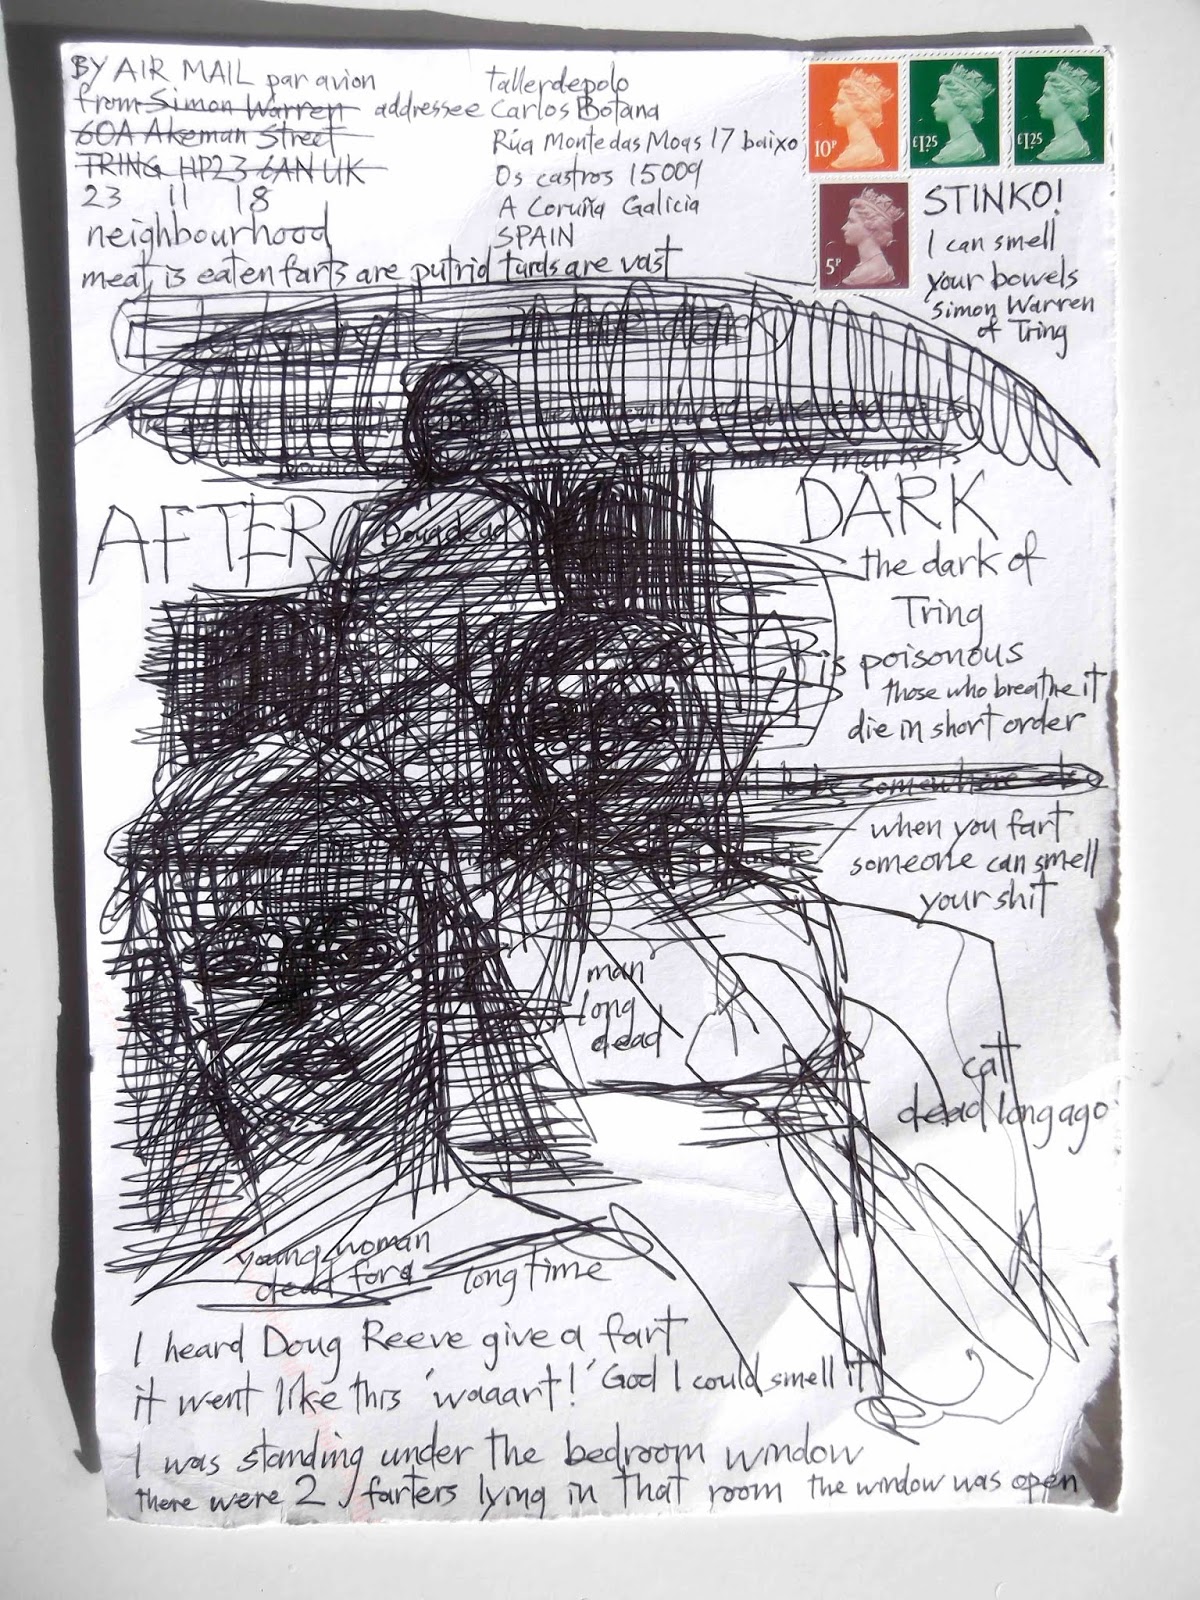 BY AIR MAIL par avion
from Simon Warren
60A Akeman Street
TRING HP23 6AN UK
23 11 18
addressee
tallerdepolo
Carlos Botana
Rúa Monte das Moas 17 baixo
Os castros 15009
A Coruña Galicia
SPAIN
10P
£1.25
£1.25
5P
neighbourhood
meat is eaten farts are putrid turds are vast
STINKO!
I can smell
your bowels
Simon Warren
of Tring
markets
AFTER
Doug dead
DARK
the dark of
Tring
is poisonous
those who breathe it
die in short order
to be somewhere
when you fart
someone can smell
your shit
man
long
dead
cat
dead long ago
young woman
dead for a long time
I heard Doug Reeve give a fart
it went like this 'waaart!' God I could smell it
I was standing under the bedroom window
there were 2 farters lying in that room the window was open